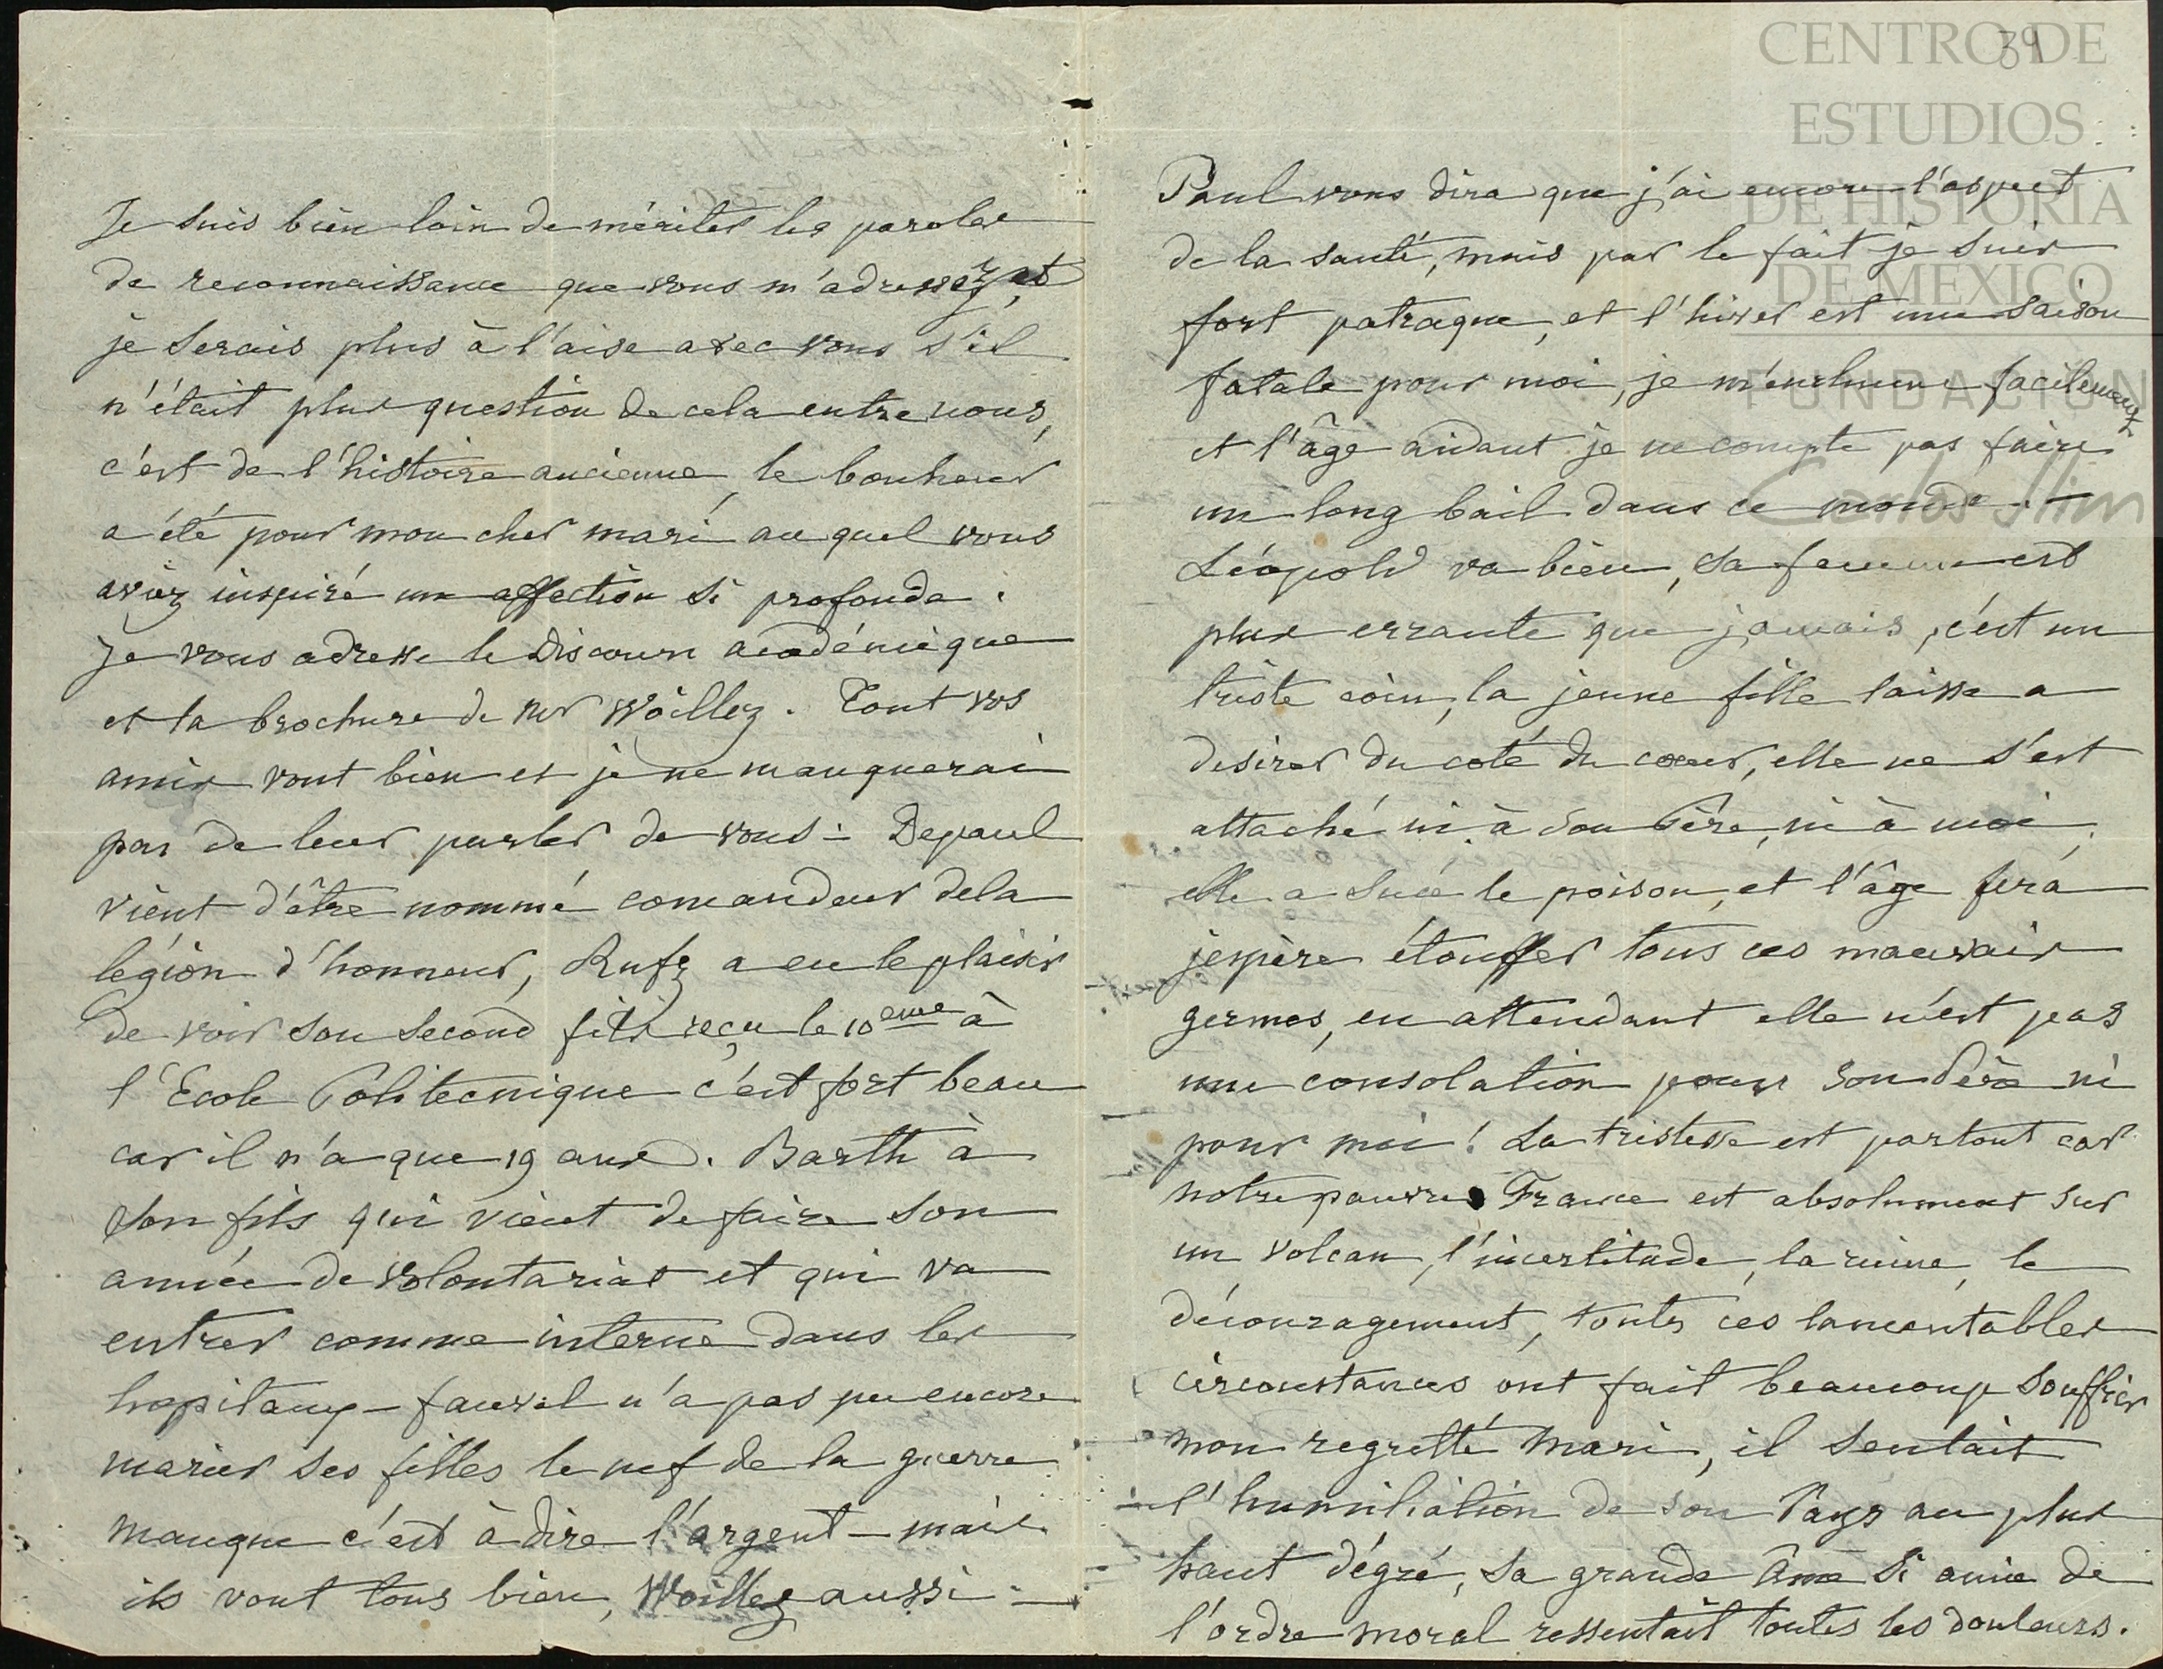 Je suis bien loin de mériter les paroles
de reconnaissance que vous m'adressez, et
je serais plus à l'aise avec vous s'il
n'était plus question de cela entre nous,
c'est de l'histoire ancienne, le bonheur
a été pour mon cher mari au quel vous
aviez inspiré un affection si profonde.
Je vous adresse le Discours académique
et la brochure de Mr Woillez. Tout vos
amis vont bien et je ne manquerai
pas de leur parler de vous - Depaul
vient d'être nommé comandeur de la
légion d'honneur, Rufz a eu le plaisir
de voir son second fils reçu le 10eme à
l'Ecole Politecnique c'est fort beau
car il n'a que 19 ans. Barth à
son fils qui vient de faire son
année de volontariat et qui va
entrer comme interne dans les
hopitaux - fauvel n'a pas pu encore
marier ses filles le nef de la guerre
manque c'est à dire l'argent - mais
ils vont tous bien, Woillez aussi -
39
Paul vous dira que j'ai encore l'aspect
de la santé, mais par le fait je suis
fort patraque, et l'hiver est une saison
fatale pour moi, je m'enrhume facilement
et l'âge aidant je ne compte pas faire
un long bail dans ce monde. -
Léopold va bien, sa femme est
plus errante que jamais, c'est un
triste coin, la jeune fille laisse a
desirer du coté du coeur, elle ne s'est
attaché ni à son Père, ni à moi,
elle a sucé le poison, et l'âge fera
jespère étouffer tous ces mauvais
germes, en attendant elle n'est pas
une consolation pour son Père ni
pour moi! La tristesse est partout car
notre pauvre France est absolument sur
un volcan, l'incertitude, la ruine, le
découragement, toutes ces lamentables
circonstances ont fait beaucoup souffrir
mon regretté mari, il sentait
l'humiliation de son Pays au plus
haut dégré, sa grande Ame si amie de
l'ordre moral ressentait toutes les douleurs.
CENTRO DE
ESTUDIOS
DE HISTORIA
DE MEXICO
FUNDACIÓN
Carlos Slim